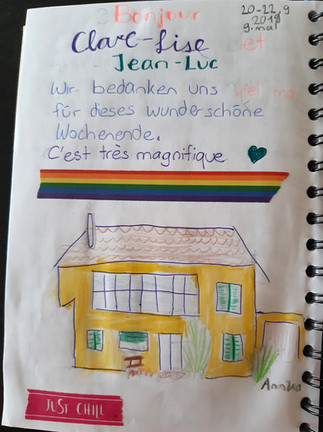 Bonjour
20-22.9
2019
Clare-Lise et
9.mal
Jean-Luc
Wir bedanken uns viel mal
für dieses wunderschöne
Wochenende.
C'est très magnifique
JUST CHILL